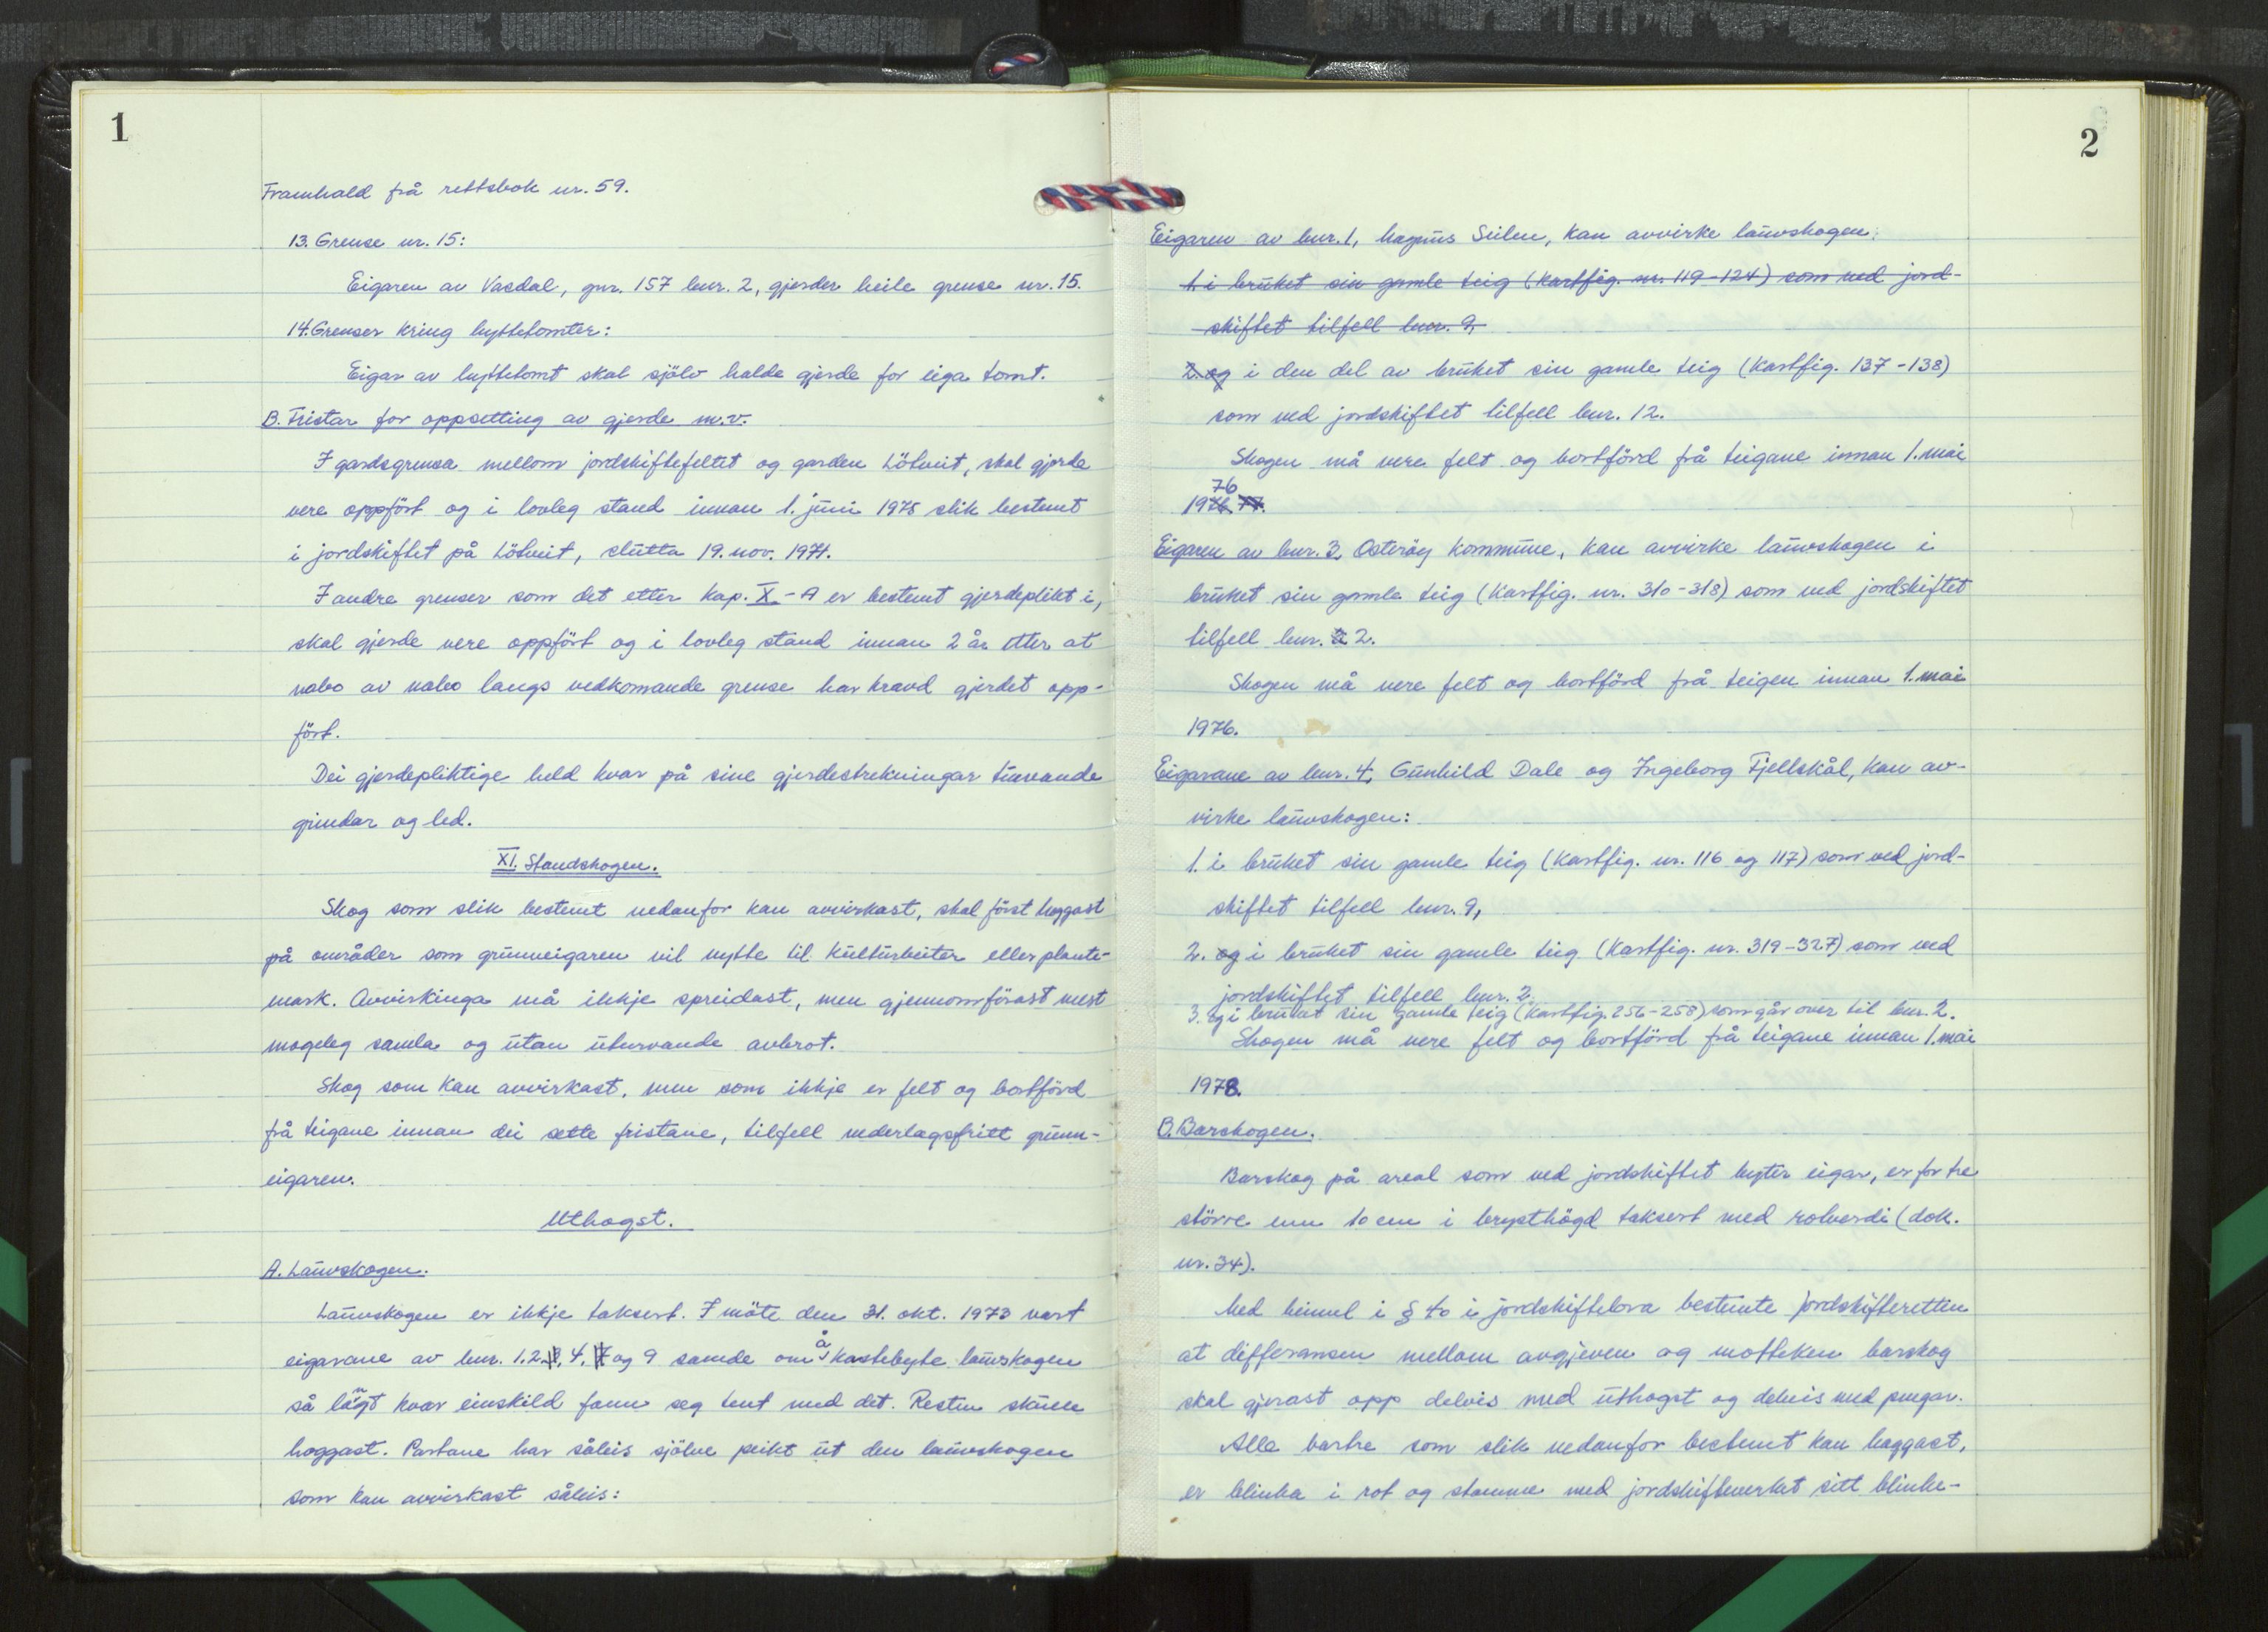 1
Framhald frå rettsbok nr. 59.
13. Grense nr. 15:
Eigaren av Vasdal, gnr. 157 bnr. 2, gjerder heile grense nr. 15.
14. Grenser kring hyttetomter:
Eigar av hyttetomt skal sjölv halde gjerde for eiga tomt.
B. Fristar for oppsetting av gjerde m.v.
I gardsgrensa mellom jordskiftefeltet og garden Lötveit, skal gjerde
vere oppfört og i lovleg stand innan 1. juni 1975 slik bestemt
i jordskiftet på Lötveit, slutta 19. nov. 1971.
I andre grenser som det etter kap. X.-A er bestemt gjerdeplikt i,
skal gjerde vere oppfört og i lovleg stand innan 2 år etter at
nabo av nabo langs vedkomande grense har kravd gjerdet opp-
fört.
Dei gjerdepliktige held kvar på sine gjerdestrekningar turvande
grindar og led.
XI. Standskogen.
Skog som slik bestemt nedanfor kan avvirkast, skal först hoggast
på områder som grunneigaren vil nytte til kulturbeiter eller plante-
mark. Avvirkinga må ikkje spreidast, men gjennomförast mest
mogeleg samla og utan uturvande avbrot.
Skog som kan avvirkast, men som ikkje er felt og bortförd
frå teigane innan dei sette fristane, tilfell vederlagsfritt grunn-
eigaren.
Uthogst.
A. Lauvskogen.
Lauvskogen er ikkje taksert. I möte den 31. okt. 1973 vart
eigarane av bnr. 1. 2. 4. og 9 samde om å kastebyte lauvskogen
så langt kvar einskild fann seg tent med det. Resten skulle
hoggast. Partane har såleis sjölve peikt ut den lauvskogen
som kan avvirkast såleis:
2
Eigaren av bnr. 1, Magnus Seilen, kan avvirke lauvskogen:
1. i bruket sin gamle teig (kartfig. nr. 119-124) som ved jord-
skiftet tilfell bnr. 9,
2. og i den del av bruket sin gamle teig (kartfig. 137-138)
som ved jordskiftet tilfell bnr. 12.
Skogen må vere felt og bortförd frå teigane innan 1. mai
76
19
Eigaren av bnr. 3, Osteröy kommune, kan avvirke lauvskogen i
bruket sin gamle teig (kartfig. nr. 310-318) som ved jordskiftet
tilfell bnr. 2.
Skogen må vere felt og bortförd frå teigen innan 1. mai
1976.
Eigarane av bnr. 4, Gunhild Dale og Ingeborg Fjellskål, kan av-
virke lauvskogen:
1. i bruket sin gamle teig (kartfig. nr. 116 og 117) som ved jord-
skiftet tilfell bnr. 9,
2. og i bruket sin gamle teig (kartfig. nr. 319-327) som ved
jordskiftet tilfell bnr. 2.
3. og i bruket sin gamle teig (kartfig. 256-258) som går over til bnr. 2.
Skogen må vere felt og bortförd frå teigane innan 1. mai
1978.
B. Barskogen.
Barskog på areal som ved jordskiftet byter eigar, er for tre
större enn 10 cm i brysthögd taksert med rotverdi (dok.
nr. 34).
Med heimel i § 40 i jordskiftelova bestemte jordskifteretten
at differansen mellom avgjeven og motteken barskog
skal gjerast opp delvis med uthogst og delvis med pengar.
Alle bartre som slik nedanfor bestemt kan hoggast,
er blinka i rot og stamme med jordskifteverket sitt blinke-